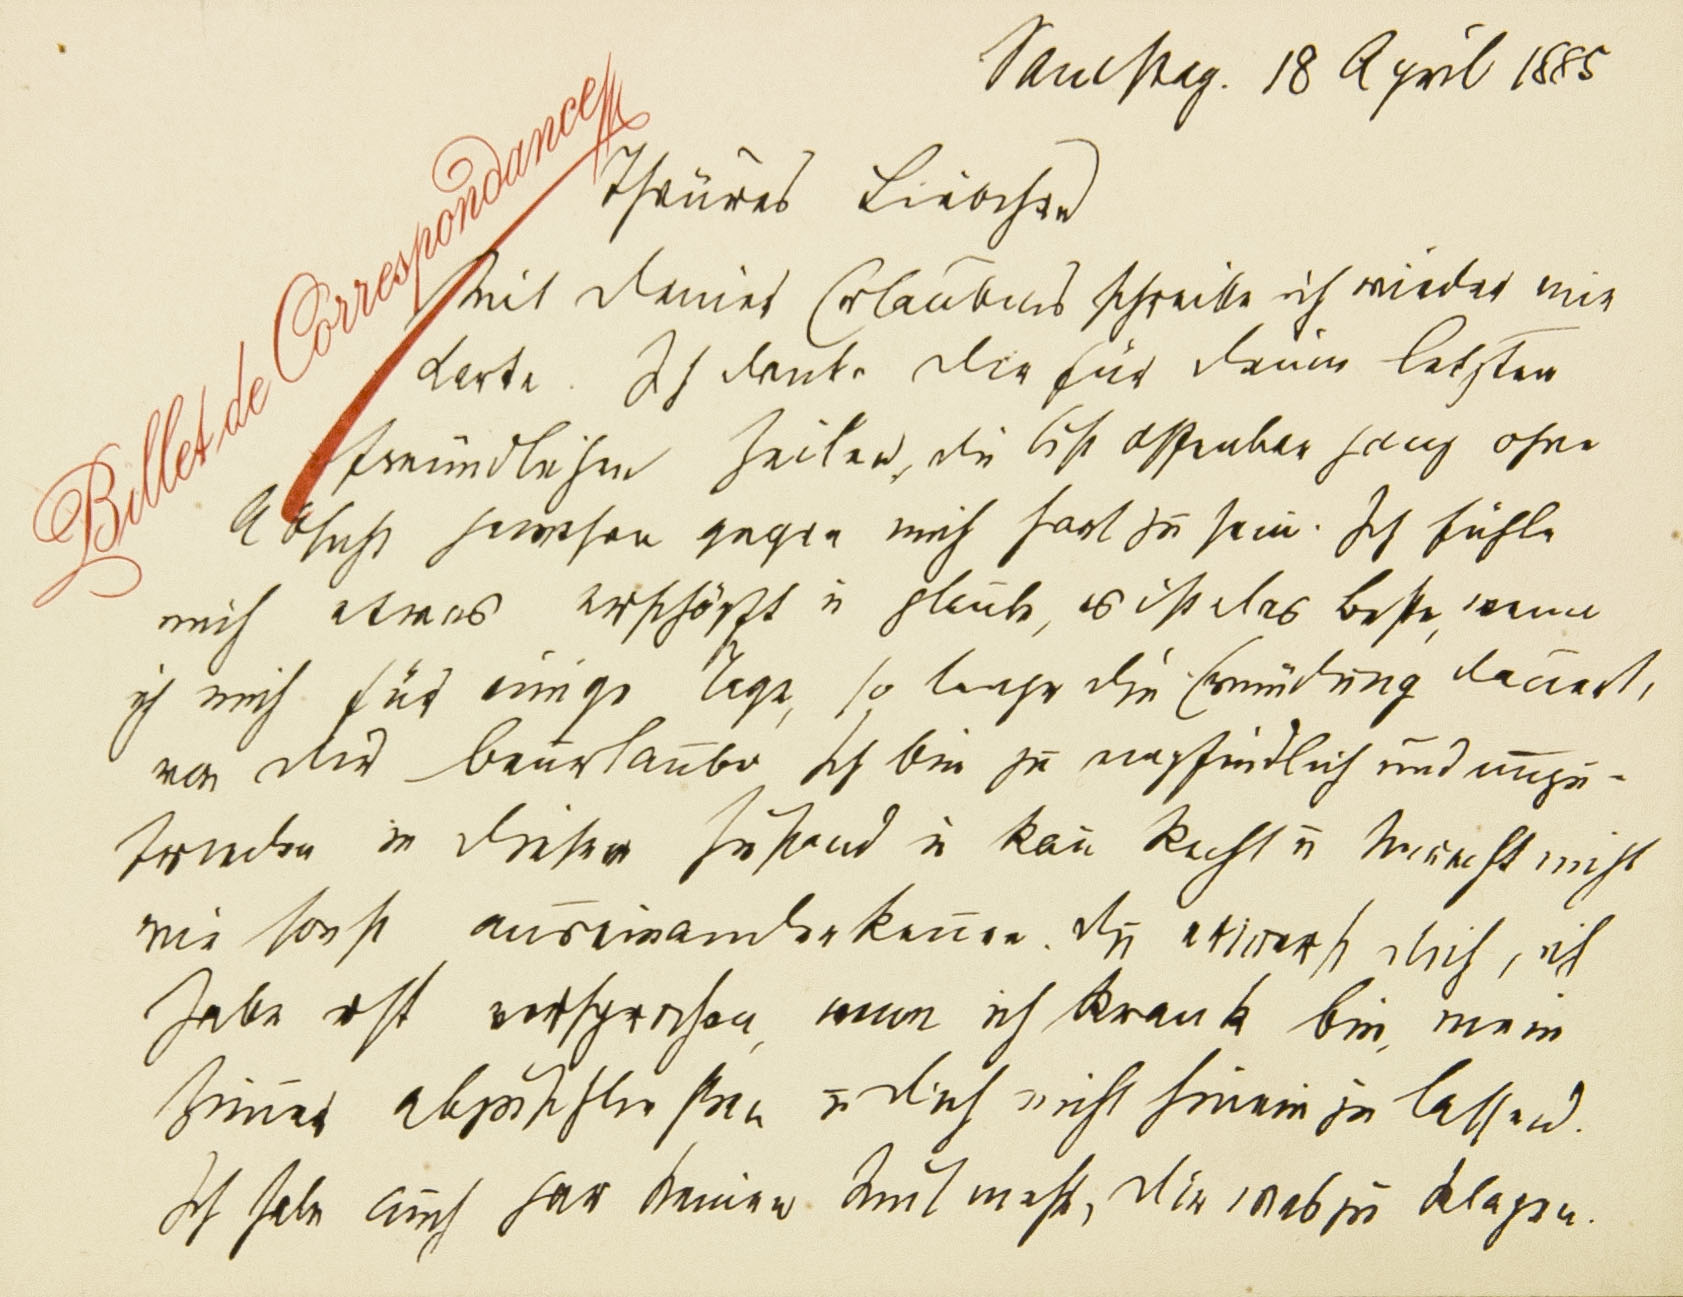 Samstag. 18 April 1885
Billet de Correspondance
Theures Liebchen
Mit Deiner Erlaubnis schreibe ich wieder eine
Karte. Ich danke Dir für Deine letzten
freundlichen Zeilen, Du bist offenbar ganz ohne
Absicht gewesen gegen mich hart zu sein. Ich fühle
mich etwas erschöpft u glaube, es ist das beste, wenn
ich mich für einige Tage, so lange die Ermüdung dauert,
von Dir beurlaube Ich bin zu empfindlich und unzu-
frieden in diesem Zustand u kan̄ Recht u Unrecht nicht
wie sonst auseinanderken̄en. Du erinnerst Dich, ich
habe oft versprochen, wenn ich krank bin, mein
Zim̄er abzuschließen u Dich nicht hinein zu lassen.
Ich habe auch gar keinen Mut mehr, Dir was zu klagen.